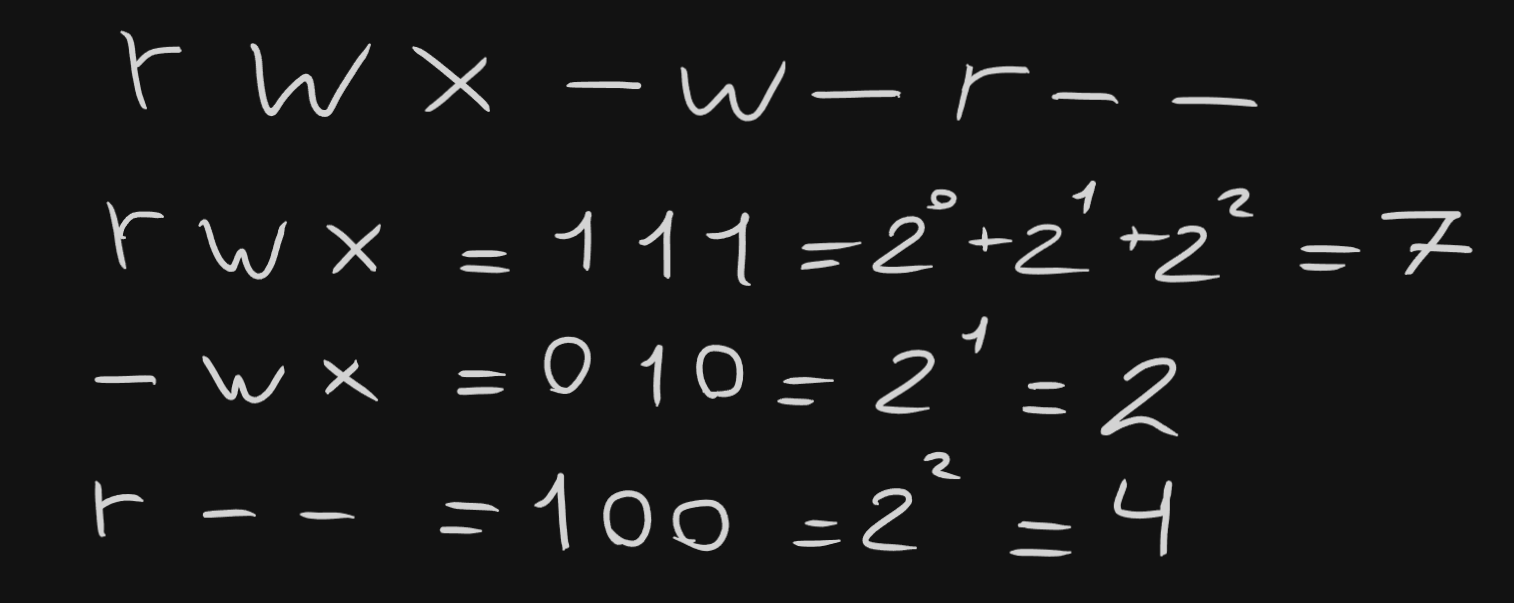 r w x - w - r - -
r w x = 1 1 1 = 2⁰ + 2¹ + 2² = 7
- w x = 0 1 0 = 2¹ = 2
r - - = 1 0 0 = 2² = 4